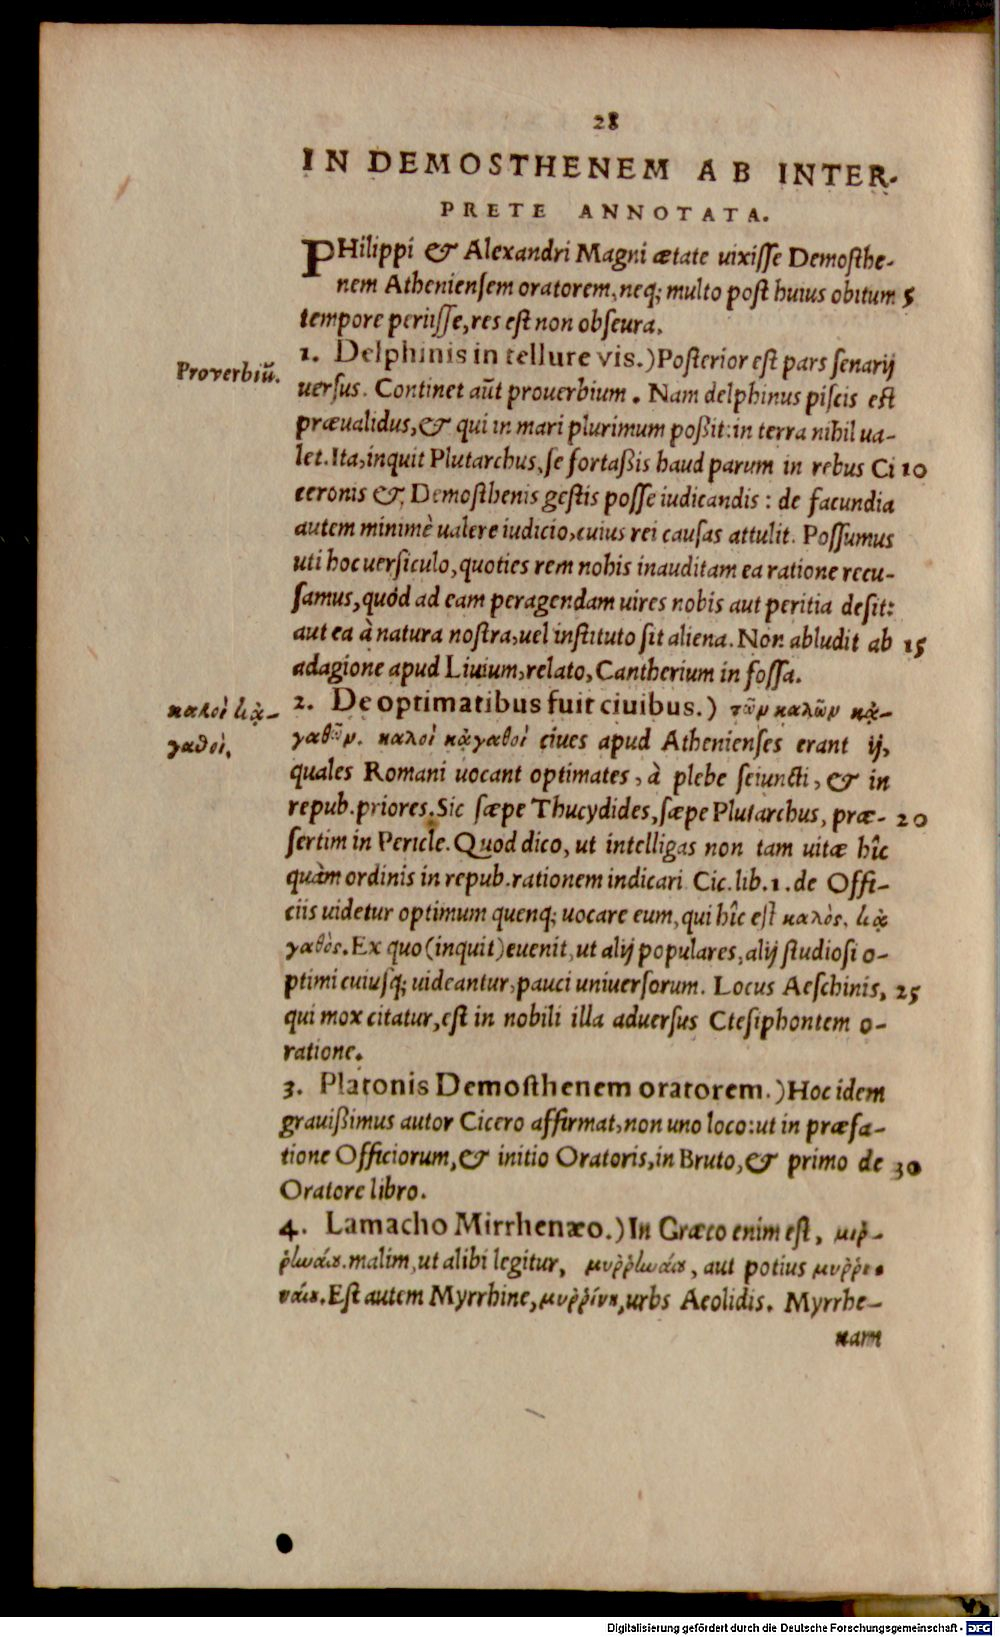 28
IN DEMOSTHENEM AB INTER-
PRETE ANNOTATA.
PHilippi & Alexandri Magni ætate uixisse Demosthe-
nem Atheniensem oratorem, neq; multo post huius obitum 5
tempore periisse, res est non obscura.
1. Delphinis in tellure vis.) Posterior est pars senarij
Proverbiũ.
uersus. Continet aũt prouerbium. Nam delphinus piscis est
præualidus, & qui in mari plurimum poßit: in terra nihil ua-
let. Ita, inquit Plutarchus, se fortaßis haud parum in rebus Ci 10
ceronis & Demosthenis gestis posse iudicandis: de facundia
autem minimè ualere iudicio, cuius rei causas attulit. Possumus
uti hoc uersiculo, quoties rem nobis inauditam ea ratione recu-
samus, quòd ad eam peragendam uires nobis aut peritia desit:
aut ea à natura nostra, uel instituto sit aliena. Non abludit ab 15
adagione apud Liuium, relato, Cantherium in fossa.
2. De optimatibus fuit ciuibus.) τῶν καλῶν κἀ-
καλοὶ κἀ-
γαθοὶ.
γαθῶν. καλοὶ κἀγαθοὶ ciues apud Athenienses erant ij,
quales Romani uocant optimates, à plebe seiuncti, & in
repub. priores. Sic sæpe Thucydides, sæpe Plutarchus, præ- 20
sertim in Pericle. Quod dico, ut intelligas non tam uitæ hîc
quàm ordinis in repub. rationem indicari. Cic. lib. 1. de Offi-
ciis uidetur optimum quenq; uocare eum, qui hîc est καλὸς κἀ
γαθὸς. Ex quo (inquit) euenit, ut alij populares, alij studiosi o-
ptimi cuiusq; uideantur, pauci uniuersorum. Locus Aeschinis, 25
qui mox citatur, est in nobili illa aduersus Ctesiphontem o-
ratione.
3. Platonis Demosthenem oratorem.) Hoc idem
grauißimus autor Cicero affirmat, non uno loco: ut in præfa-
tione Officiorum, & initio Oratoris, in Bruto, & primo de 30
Oratore libro.
4. Lamacho Mirrhenæo.) In Græco enim est, μιῤ-
ῥηναίου. malim, ut alibi legitur, μυῤῥηναίου, aut potius μυῤῥι-
ναίου. Est autem Myrrhine, μυῤῥίνη, urbs Aeolidis. Myrrhe-
nam
Digitalisierung gefördert durch die Deutsche Forschungsgemeinschaft - DFG